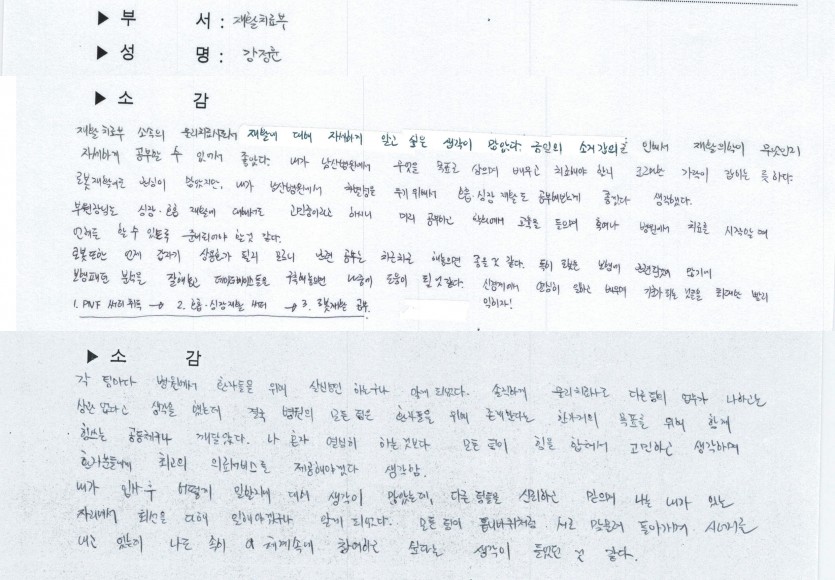 ▶ 부 서 : 재활치료부
▶ 성 명 : 강정훈
▶ 소 감
재활치료부 소속의 물리치료사로서 재활에 대해 자세하게 알고 싶은 생각이 많았다. 금번의 소개강의로 인해서 재활의학이 무엇인지
자세하게 공부할 수 있어서 좋았다. 내가 남산병원에서 무엇을 목표로 삼으며 배우고 치료해야 할지 고민한 가닥이 잡히는 듯 하다.
로봇재활치료 관심이 많았지만, 내가 남산병원에서 위해서 호흡·심장 재활도 공부해보는게 좋겠다 생각했다.
부원장님도 심장·호흡 재활에 대해서도 고민중이라고 하시니 미리 공부하고 학회에서 교육을 들으며 혹여나 병원에서 치료를 시작할 때
언제든 할 수 있도록 준비되어야 할것 같다.
로봇 또한 언제 갑자기 상용화가 될지 모르니 관련 공부는 차근차근 해놓으면 좋을것 같다. 특히 로봇은 보행에 많기에
보행패턴 분석을 잘해놓고 데이터베이스들을 구축해놓으면 나중에 도움이 될것 같다. 신경계에서 열심히 일하고 배우며 빨리
1. PNF 써티 취득 → 2. 호흡·심장재활 써티 → 3. 로봇재활 공부. 익히자!
▶ 소 감
각 팀마다 병원에서 환자들을 위해 살신성인 하는구나 알게 되었다. 솔직하게 물리치료사로 다른팀의 업무가 나하고는
상관 없다고 생각을 했는데 결국 병원의 모든 팀은 환자들을 위해 존재한다는 한가지의 목표를 위해 함께
힘쓰는 공동체구나 깨달았다. 나 혼자 열심히 하는것보다 모든 팀이 힘을 합해서 고민하고 생각하며
환자분들에게 최고의 의료서비스를 제공해야겠다 생각함.
내가 입사 후 어떻게 일할지에 대해 생각이 많았는데, 다른 팀들을 신뢰하고 믿으며 나는 내가 있는
자리에서 최선을 다해 일해야겠구나 알게 되었다. 모든 팀이 톱니바퀴처럼 서로 맞물려 돌아가며 시너지를
내고 있는데 나도 속히 이 체계속에 참여하고 싶다는 생각이 들었던 것 같다.